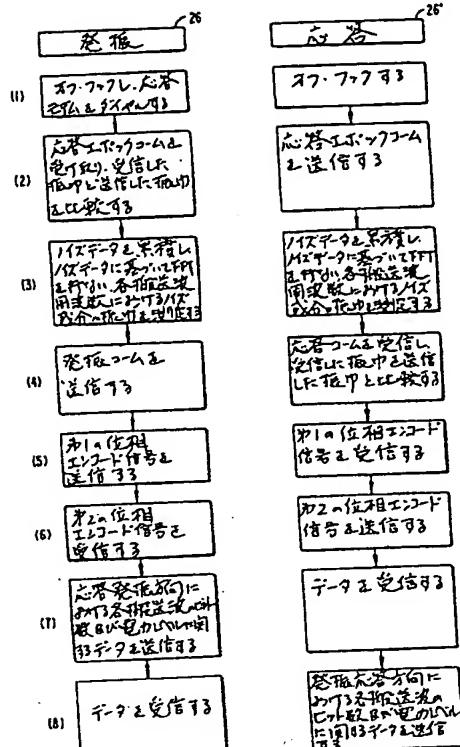 26
発振
(1)
オフ・フックし、応答
モデムをダイヤルする
(2)
応答エポックコームを
受け取り、受信した
振巾と送信した振巾
を比較する
(3)
ノイズデータを累積し、
ノイズデータに基づいてFFT
を行ない、各搬送波
周波数におけるノイズ
成分の振巾を決定する
(4)
発振コームを
送信する
(5)
第1の位相
エンコード信号を
送信する
(6)
第2の位相
エンコード信号を
受信する
(7)
応答発振方向に
おける各搬送波のビット
数及び電力レベルに関
するデータを送信する
(8)
データを受信する
26'
応答
オフ・フックする
応答エポックコーム
を送信する
ノイズデータを累積し、
ノイズデータに基づいてFFT
を行ない、各搬送波
周波数におけるノイズ
成分の振巾を決定する
応答コームを受信し、
受信した振巾を送信
した振巾と比較する
第1の位相エンコード
信号を受信する
第2の位相エンコード
信号を送信する
データを受信する
発振応答方向に
おける各搬送波の
ビット数及び電力レベル
に関するデータを送信
する